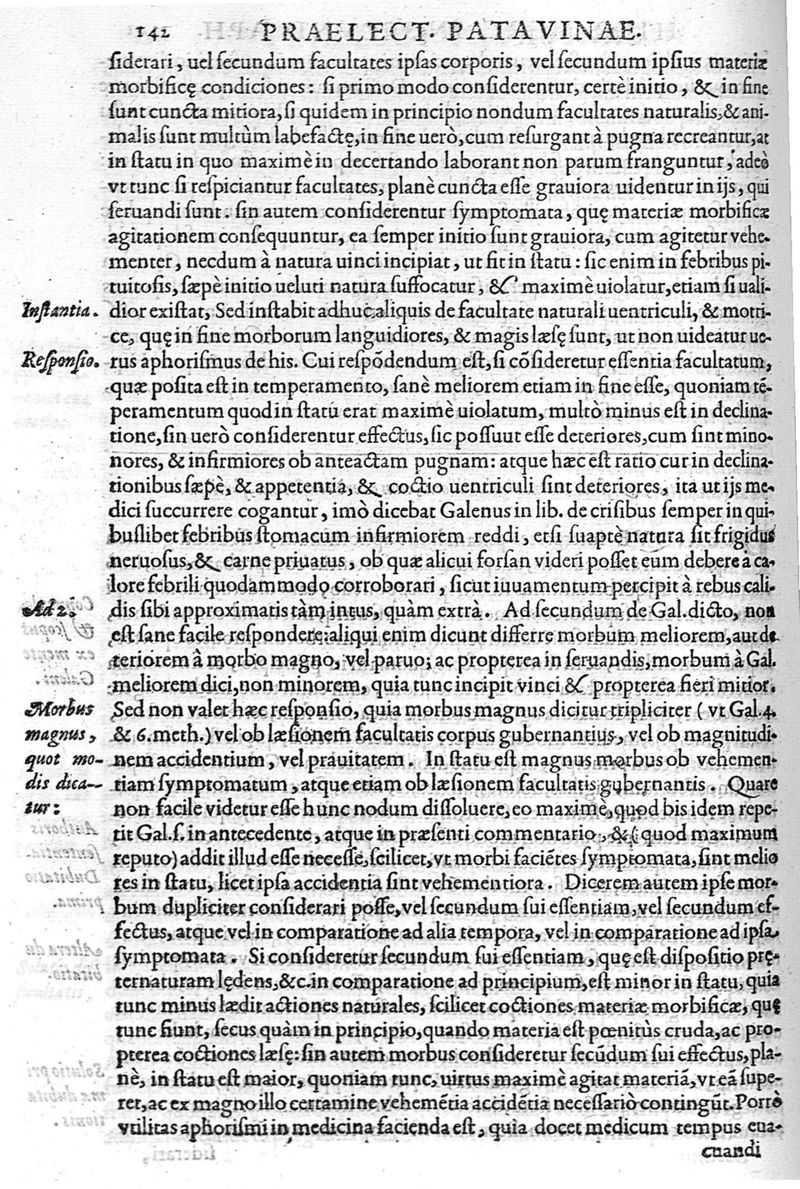 142 PRAELECT. PATAVINAE.
siderari, uel secundum facultates ipsas corporis, vel secundum ipsius materiæ
morbificę condiciones: si primo modo considerentur, certè initio, & in fine
sunt cuncta mitiora, si quidem in principio nondum facultates naturalis, & ani-
malis sunt multùm labefactę, in fine uerò, cum resurgant à pugna recreantur, at
in statu in quo maximè in decertando laborant non parum franguntur, adeò
vt tunc si respiciantur facultates, planè cuncta esse grauiora uidentur in ijs, qui
seruandi sunt. sin autem considerentur symptomata, quę materiæ morbificæ
agitationem consequuntur, ea semper initio sunt grauiora, cum agitetur vehe-
menter, necdum à natura uinci incipiat, ut fit in statu: sic enim in febribus pi-
tuitosis, sæpè initio ueluti natura suffocatur, & maximè uiolatur, etiam si uali-
Instantia. dior existat, Sed instabit adhuc aliquis de facultate naturali uentriculi, & motri-
ce, quę in fine morborum languidiores, & magis læsę sunt, ut non uideatur ue-
Responsio. rus aphorismus de his. Cui respōdendum est, si cōsideretur essentia facultatum,
quæ posita est in temperamento, sanè meliorem etiam in fine esse, quoniam tē-
peramentum quod in statu erat maximè uiolatum, multò minus est in declina-
tione, sin uerò considerentur effectus, sic possuut esse deteriores, cum sint mino-
nores, & infirmiores ob anteactam pugnam: atque hæc est ratio cur in declina-
tionibus sæpè, & appetentia, & coctio uentriculi sint deteriores, ita ut ijs me-
dici succurrere cogantur, imò dicebat Galenus in lib. de crisibus semper in qui-
buslibet febribus stomacum infirmiorem reddi, etsi suaptè natura sit frigidus
neruosus, & carne priuatus, ob quæ alicui forsan videri posset eum debere à ca-
lore febrili quodammodo corroborari, sicut iuuamentum percipit à rebus cali-
Ad 2. dis sibi approximatis tàm intus, quàm extrà. Ad secundum de Gal. dicto, non
est sane facile respondere: aliqui enim dicunt differre morbum meliorem, aut de
teriorem â morbo magno, vel paruo; ac propterea in seruandis, morbum à Gal.
meliorem dici, non minorem, quia tunc incipit vinci & propterea fieri mitior.
Morbus Sed non valet hæc responsio, quia morbus magnus dicitur tripliciter ( vt Gal. 4.
magnus, & 6. meth.) vel ob læsionem facultatis corpus gubernantius, vel ob magnitudi-
quot mo- nem accidentium, vel prauitatem. In statu est magnus morbus ob vehemen-
dis dica- tiam symptomatum, atque etiam ob læsionem facultatis gubernantis. Quare
tur: non facile videtur esse hunc nodum dissoluere, eo maximè, quod bis idem repe-
tit Gal. s. in antecedente, atque in præsenti commentario, & ( quod maximum
reputo) addit illud esse necesse, scilicet, vt morbi faciētes symptomata, sint melio
res in statu, licet ipsa accidentia sint vehementiora. Dicerem autem ipse mor-
bum dupliciter considerari posse, vel secundum sui essentiam, vel secundum ef-
fectus, atque vel in comparatione ad alia tempora, vel in comparatione ad ipsa
symptomata. Si consideretur secundum sui essentiam, quę est dispositio prę-
ternaturam lędens, &c. in comparatione ad principium, est minor in statu, quia
tunc minus lædit actiones naturales, scilicet coctiones materiæ morbificæ, quę
tunc fiunt, secus quàm in principio, quando materia est pœnitùs cruda, ac pro-
pterea coctiones læsę: sin autem morbus consideretur secūdum sui effectus, pla-
nè, in statu est maior, quoniam tunc, uirtus maximè agitat materiā, vt eā supe-
ret, ac ex magno illo certamine vehemētia accidētia necessariò contingūt. Porrò
vtilitas aphorismi in medicina facienda est, quia docet medicum tempus eua-
cuandi